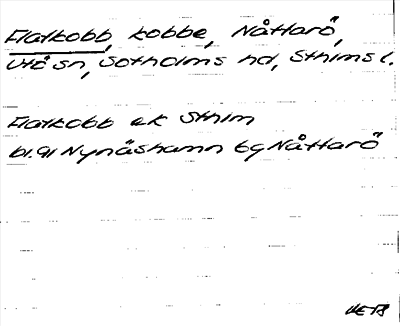 Flatkobb, kobbe, Nåttarö,
Utö sn, Sotholms hd, Sthlms l.
Flatkobb ek Sthlm
bl. 91 Nynäshamn bg Nåttarö